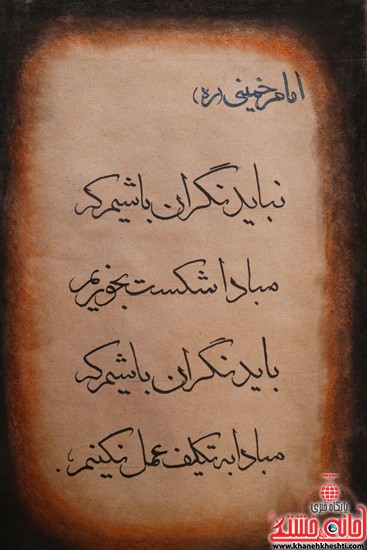 امام خمینی (ره)
نباید نگران باشیم که
مبادا شکست بخوریم
باید نگران باشیم که
مبادا به تکلیف عمل نکنیم.
پایگاه خبری
خانه خشتی
www.khanehkheshti.com